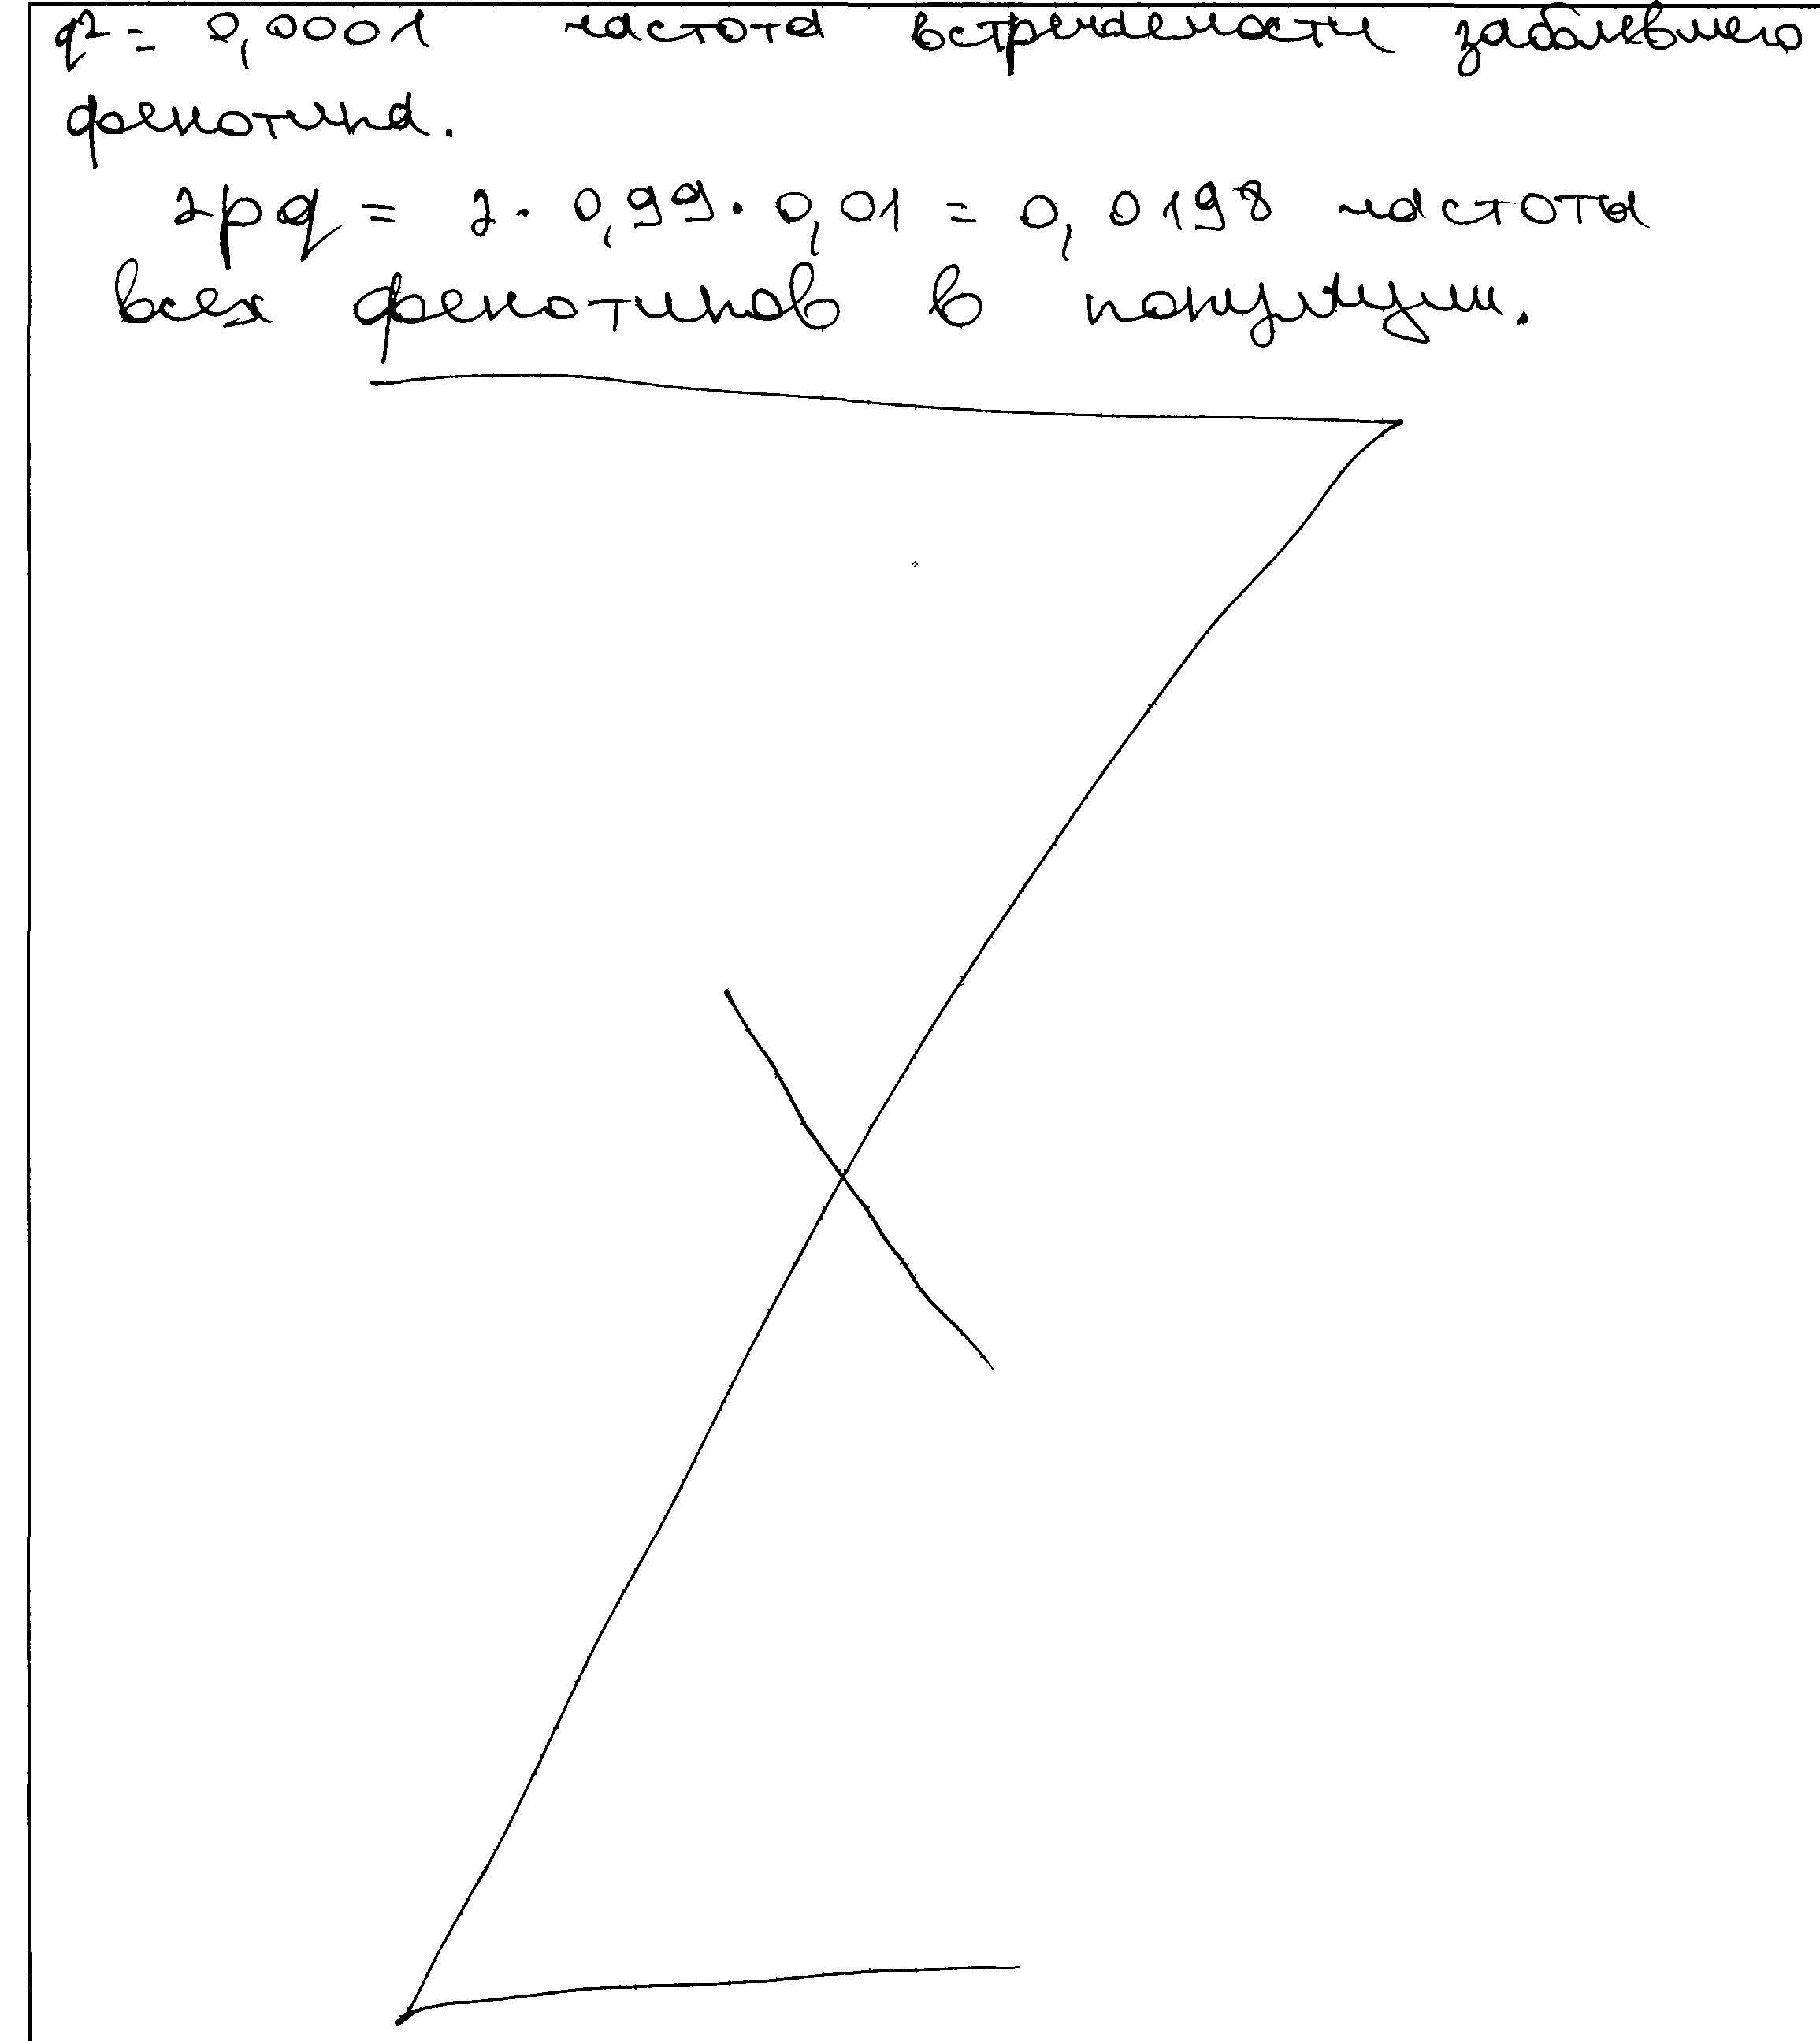 q² = 0,0001 частота встречаемости заболевшего
фенотипа.
2pq = 2 · 0,99 · 0,01 = 0,0198 частоты
всех фенотипов в популяции.